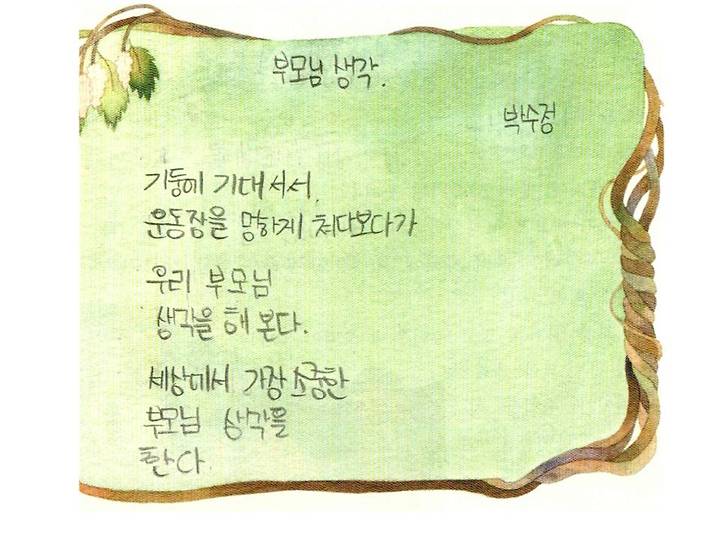 부모님 생각.
박수정
기둥에 기대서서,
운동장을 멍하게 쳐다보다가
우리 부모님
생각을 해 본다.
세상에서 가장 소중한
부모님 생각을
한다.